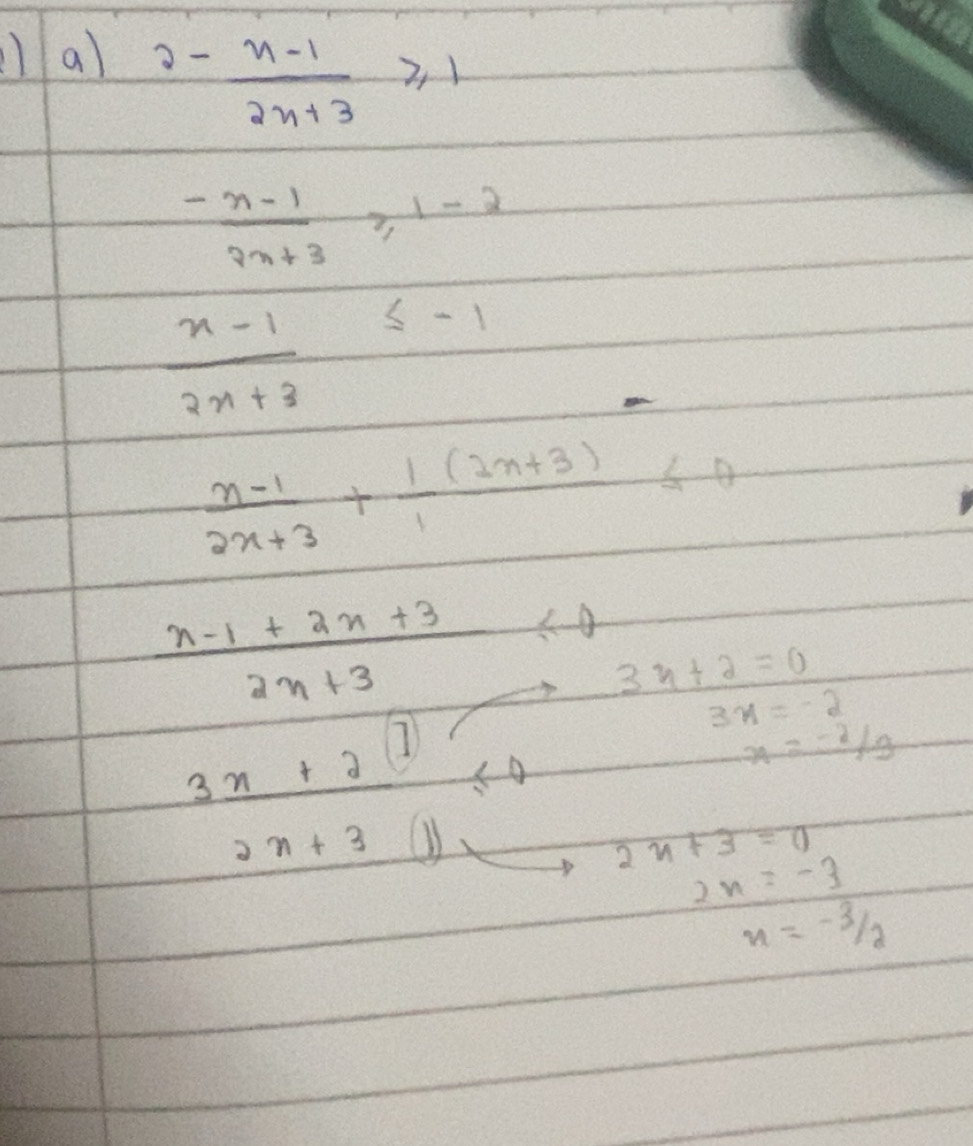 a) 2 - (x-1)/(2x+3) ≥ 1
-(x-1)/(2x+3) ≥ 1 - 2
(x-1)/(2x+3) ≤ -1
(x-1)/(2x+3) + 1/1 (2x+3) ≤ 0
(x-1 + 2x + 3)/(2x+3) ≤ 0
3x + 2 = 0
3x = -2
x = -2/3
(3x + 2)/(2x + 3) ≤ 0
2x + 3 = 0
2x = -3
x = -3/2